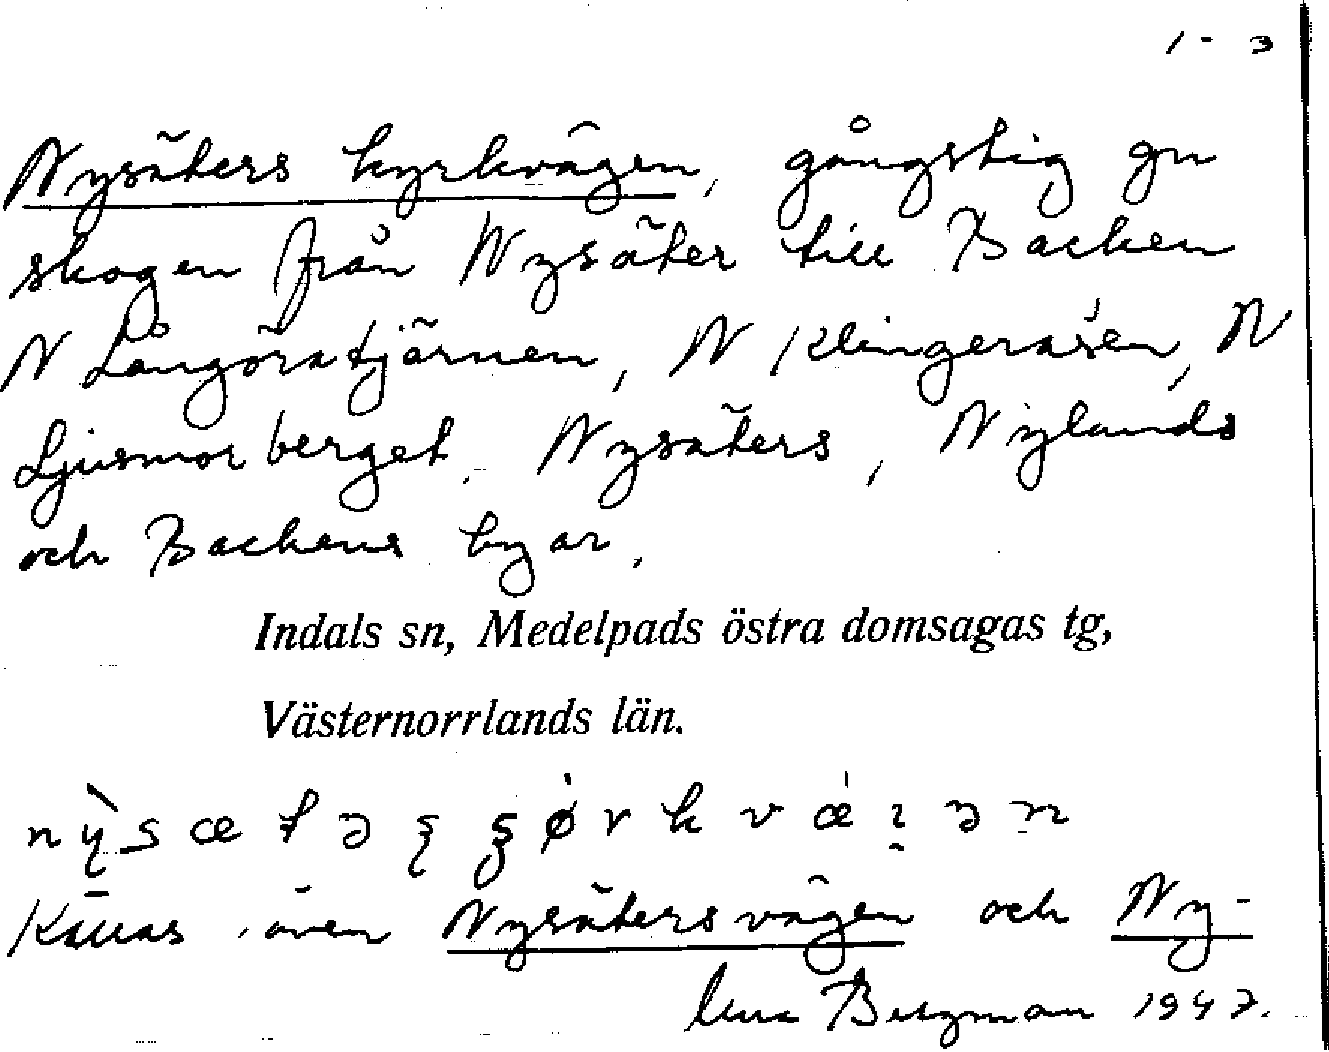 1-3
Nysäters kyrkvägen, gångstig gn
skogen från Nysäter till Backen
N Långöratjärnen, N Klingeråsen, N
Ljusmorberget. Nysäters, Nylands
och Backens byar.
Indals sn, Medelpads östra domsagas tg,
Västernorrlands län.
Kallas även Nysätersvägen och Ny-
Bergman 1947.